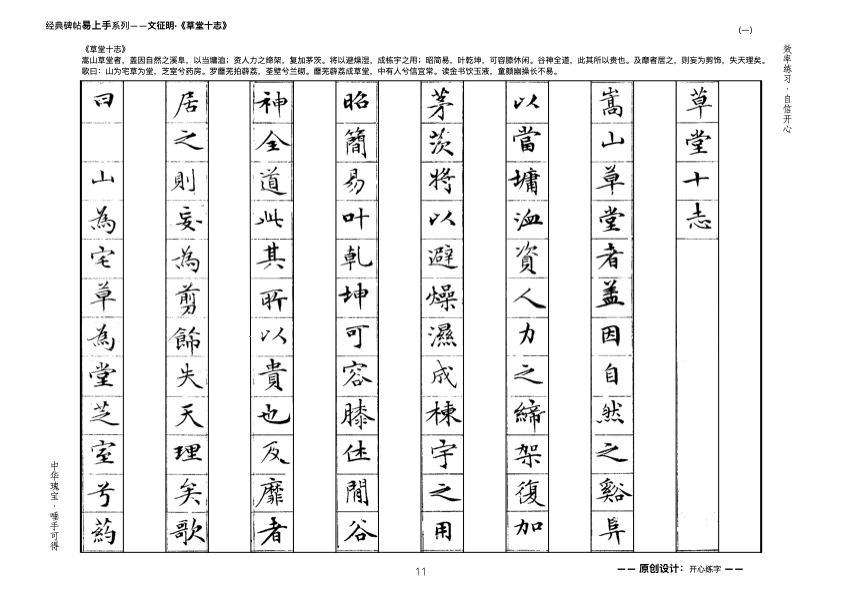 经典碑帖易上手系列——文征明·《草堂十志》
（一）
《草堂十志》
嵩山草堂者，盖因自然之溪阜，以当墉洫；资人力之缔架，复加茅茨。将以避燥湿，成栋宇之用；昭简易，叶乾坤，可容膝休闲。谷神全道，此其所以贵也。及靡者居之，则妄为剪饰，失天理矣。
歌曰：山为宅草为堂，芝室兮药房。罗蘼芜拍薜荔，荃壁兮兰砌。蘼芜薜荔成草堂，中有人兮信宜常。读金书饮玉液，童颜幽操长不易。
效率练习·自信开心
草堂十志
嵩山草堂者盖因自然之谿阜
以當墉洫資人力之締架復加
茅茨将以避燥濕成棟宇之用
昭簡易叶乾坤可容膝休閒谷
神全道此其所以貴也及靡者
居之則妄為剪飾失天理矣歌
曰 山為宅草為堂芝室兮葯
中华瑰宝·唾手可得
11
—— 原创设计：开心练字 ——